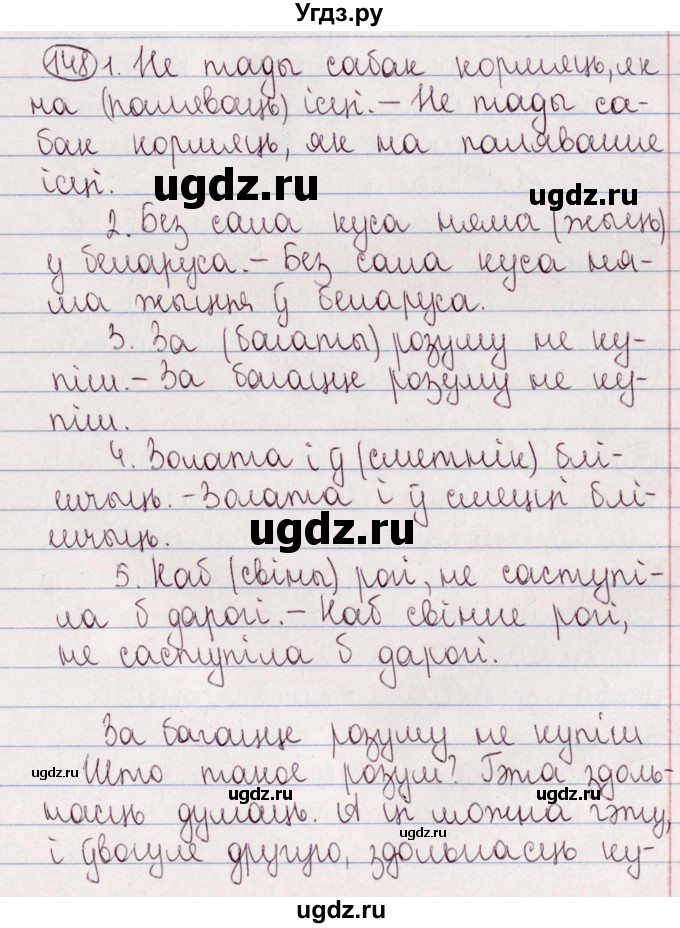 Угдз.ру
148 1. Не тады сабак кормяць, як
на (паляваць) ісці. – Не тады са-
бак кормяць, як на паляванне
ісці.
ugdz.ru
ugdz.ru
2. Без сала куса няма (жыць)
у беларуса. – Без сала куса ня-
ма жыцця ў беларуса.
3. За (багаты) розуму не ку-
піш. – За багацце розуму не ку-
піш.
4. Золата і ў (сметнік) блі-
шчыць. – Золата і ў смецці блі-
шчыць.
ugdz.ru
5. Каб (свіны) рогі, не саступі-
ла б дарогі. – Каб свінне рогі,
не саступіла б дарогі.
За багацце розуму не купіш
Што такое розум? Гэта здоль-
ugdz.ru
ugdz.ru
ugdz.ru
насць думаць. А ці можна гэту,
ugdz.ru
і ўвогуле другую, здольнасць ку-
ugdz.ru